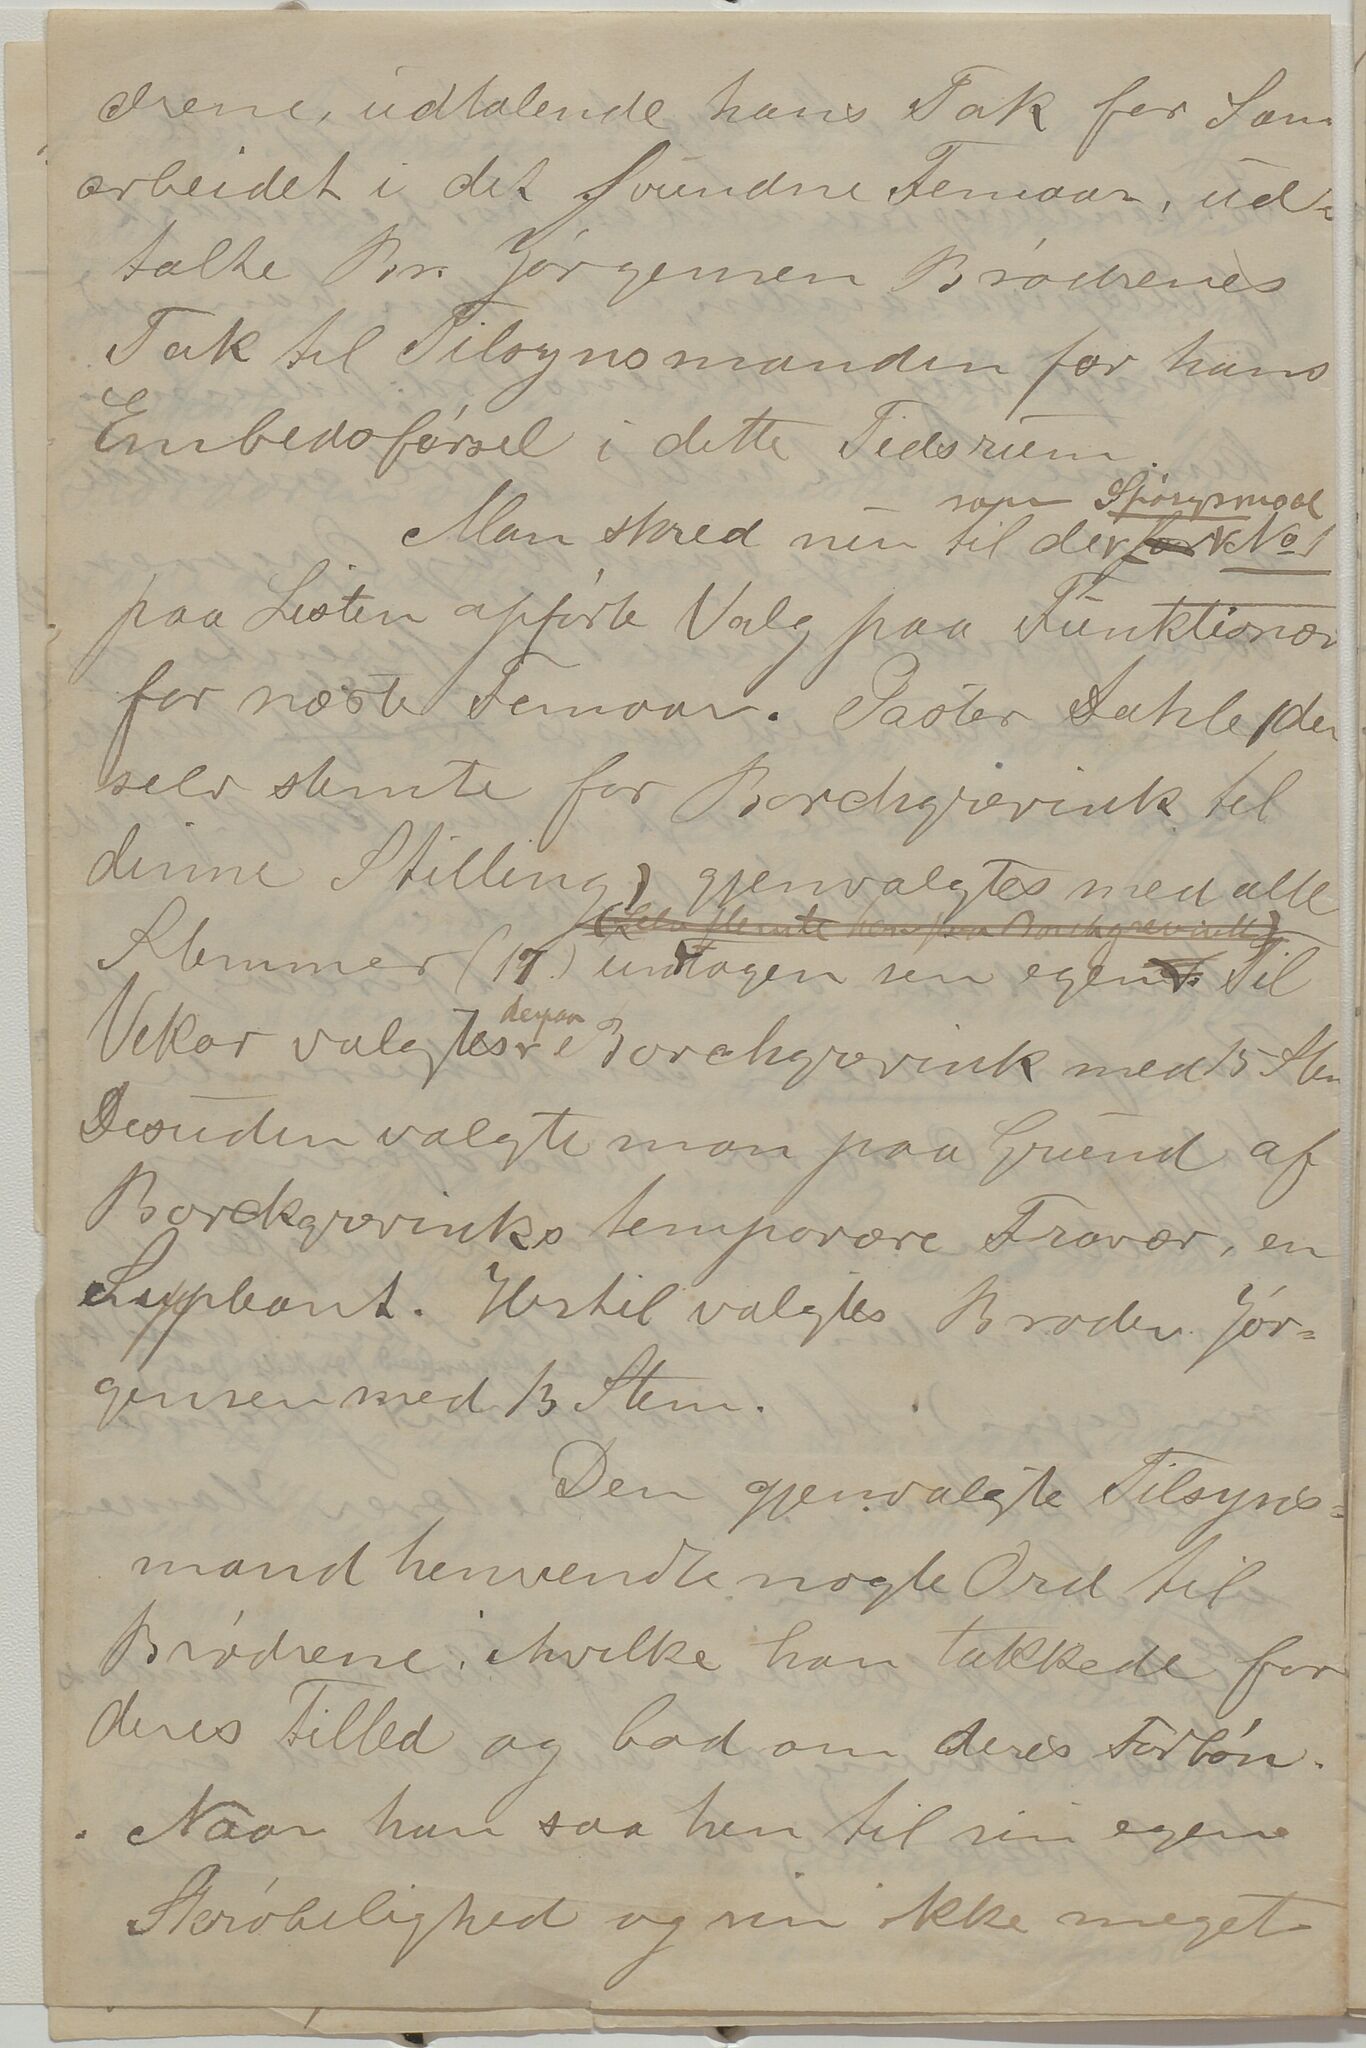 drene, udtalende hans Tak for Sam
arbeidet i det svundne Femaar, ud-
talte Br. Jörgensen Brödrenes
Tak til Tilsynsmanden for hans
Embedsförsel i dette Tidsrum.
som Spörgsmaal
Man skred nu til det for No 1
paa Listen opförte Valg paa Funktionær
for næste Femaar. Pastor Dahle (der
selv stemte for Borchgrevink til
denne Stilling) gjenvalgtes med alle
(selv stemte han paa Borchgrevink)
Stemmer (17) undtagen sin egen. Til
derpaa
Vikar valgtes Borchgrevink med 15 Stem
Desuden valgte man paa Grund af
Borchgrevinks temporære Fravær, en
Suppleant. Hertil valgtes Broder Jör-
gensen med 13 Stem.
Den gjenvalgte Tilsyns-
mand henvendte nogle Ord til
Brödrene, i hvilke han takkede for
deres Tillid og bad om deres Forbön.
Naar han saa hen til sin egen
Skröbelighed og sin ikke meget